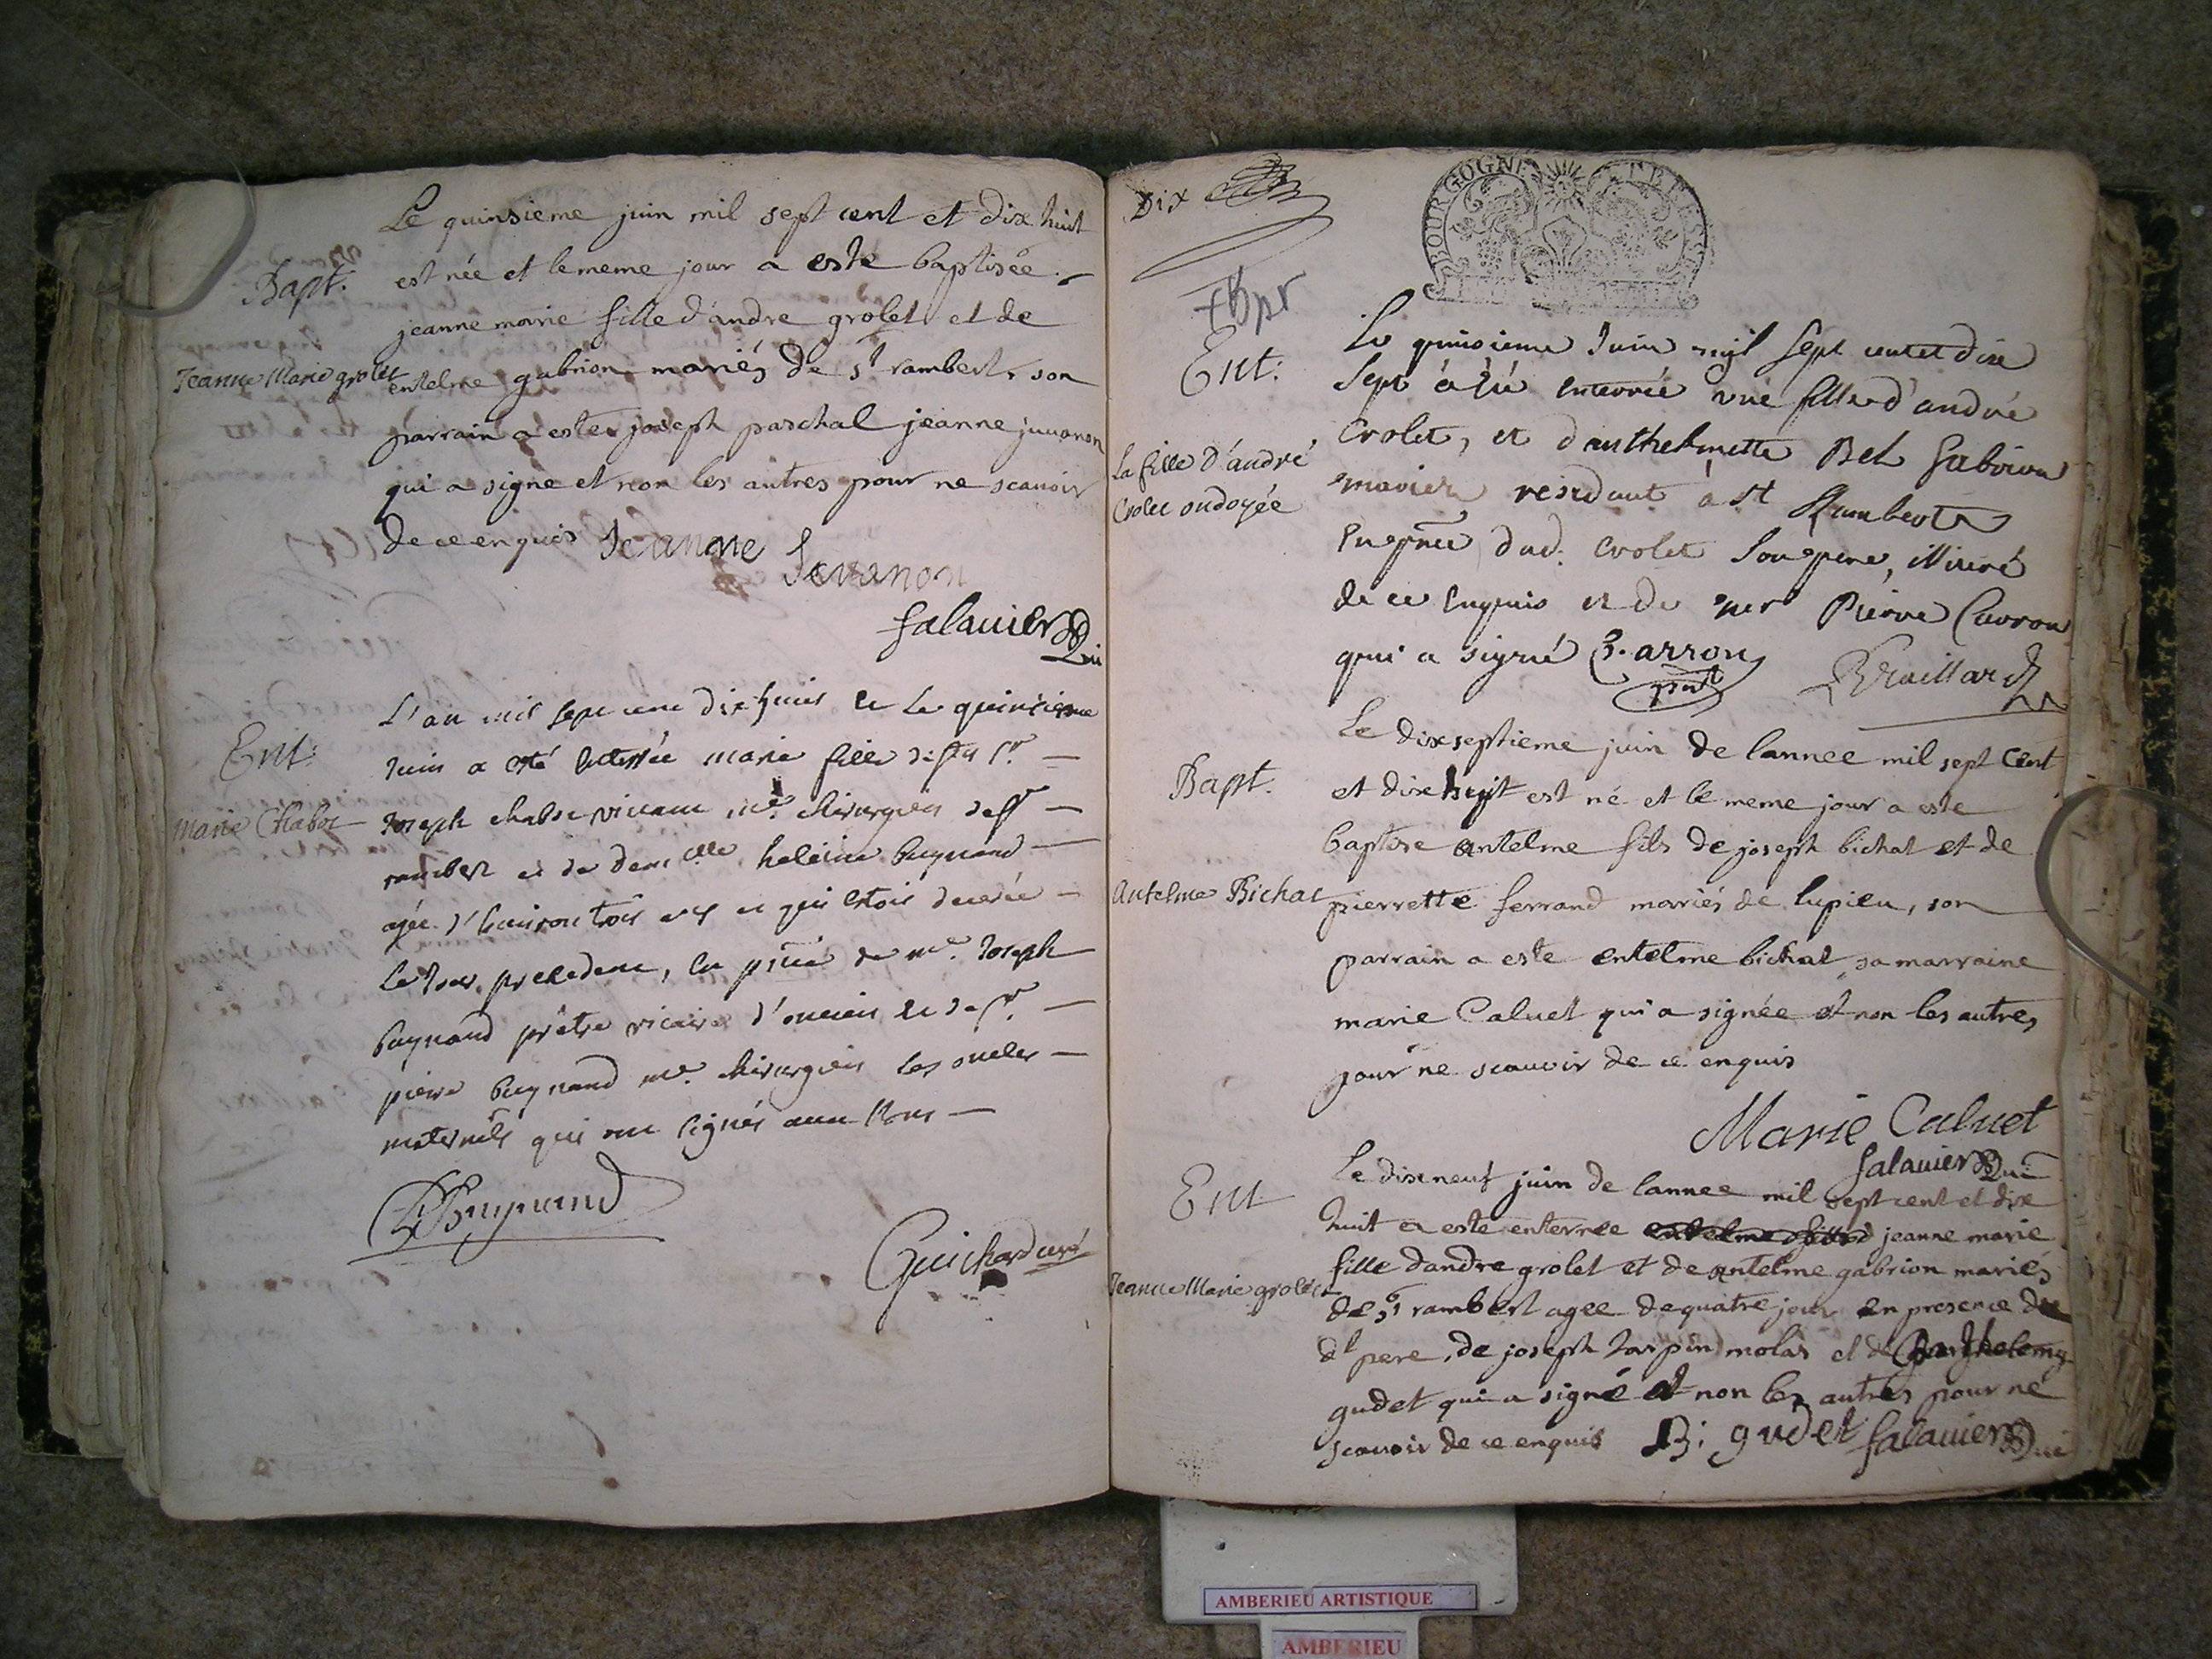 Le quinsieme juin mil sept cent et dix huit
Bapt. est née et le meme jour a este baptisée
jeanne marie fille d'andre grolet et de
Jeanne Marie grolet
entelme gabrion mariés de st rambert, son
parrain a este joseph paschal jeanne juuanon
qui a signe et non les autres pour ne scauoir
de ce enquis Jeanne
Juuanon
Salauier
L'an mil sept cent dix huit et le quinzieme
Ent:
Juin a esté enterrée marie fille de
marie Chabot
Joseph vivant me. chirurgien de st
rambert et de dem elle heleine bugnand
agée d'environ trois ans et qui estoit decedée
le jour precedent, en pnce de me. Joseph
bugnand prêtre vicaire d'oncieu et de sr
pierre bugnand me. chirurgien les oncles
maternels qui ont signés avec nous
Bugnand
Guichard curé
Dix
BOURGOGNE ET BRESSE
Ent:
Le quinsieme Juin mil sept cent et dix
sept a été enterrée une fille d'andré
Crolet, et d'anthelmette Bel Gabrion
la fille d'andré
Crolet ondoyée
mariez residant à st Rambert
En pnce dud. Crolet son pere, illitéré
de ce enquis et de mr Pierre Carron
qui a signé Carron
Braillard
Le dixseptieme juin de lannee mil sept cent
Bapt.
et dixhuit est né et le meme jour a este
baptise antelme fils de joseph bichat et de
Antelme Bichat
pierrette ferrand mariés de lupieu, son
parrain a este entelme bichat, sa marraine
marie Caluet qui a signée et non les autres
pour ne scauoir de ce enquis
Marie Caluet
Salauier
Ent
Le dixneuf juin de lannee mil sept cent et dix
huit a este enterree jeanne marie
fille dandre grolet et de antelme gabrion mariés
Jeanne Marie grolet
de st rambert agee de quatre jour en presence du
dt pere, de joseph molas et de Barthelemy
gudet qui a signé et non les autres pour ne
scauoir de ce enquis B. gudet Salauier
AMBERIEU ARTISTIQUE
AMBERIEU